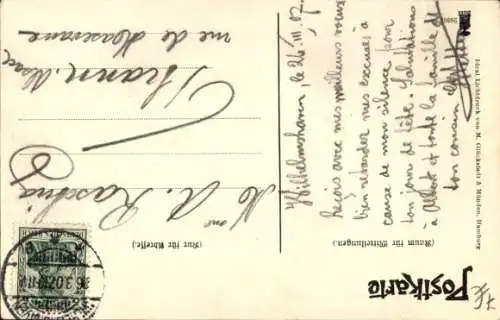 Postkarte
(Raum für Mitteilungen.)
(Nur für Adresse.)
Wilhelmshaven, le 26. III. 07.
Reçois avec mes meilleurs voeux
bien retardés mes excuses à
cause de mon silence pour
ton jour de fête. Salutations
à Albert et toute la famille de
ton cousin
Mme A. Rasching
Thann. Alsace
rue de Massevaux
Ideal Lichtdruck von M. Glückstadt & Münden, Hamburg